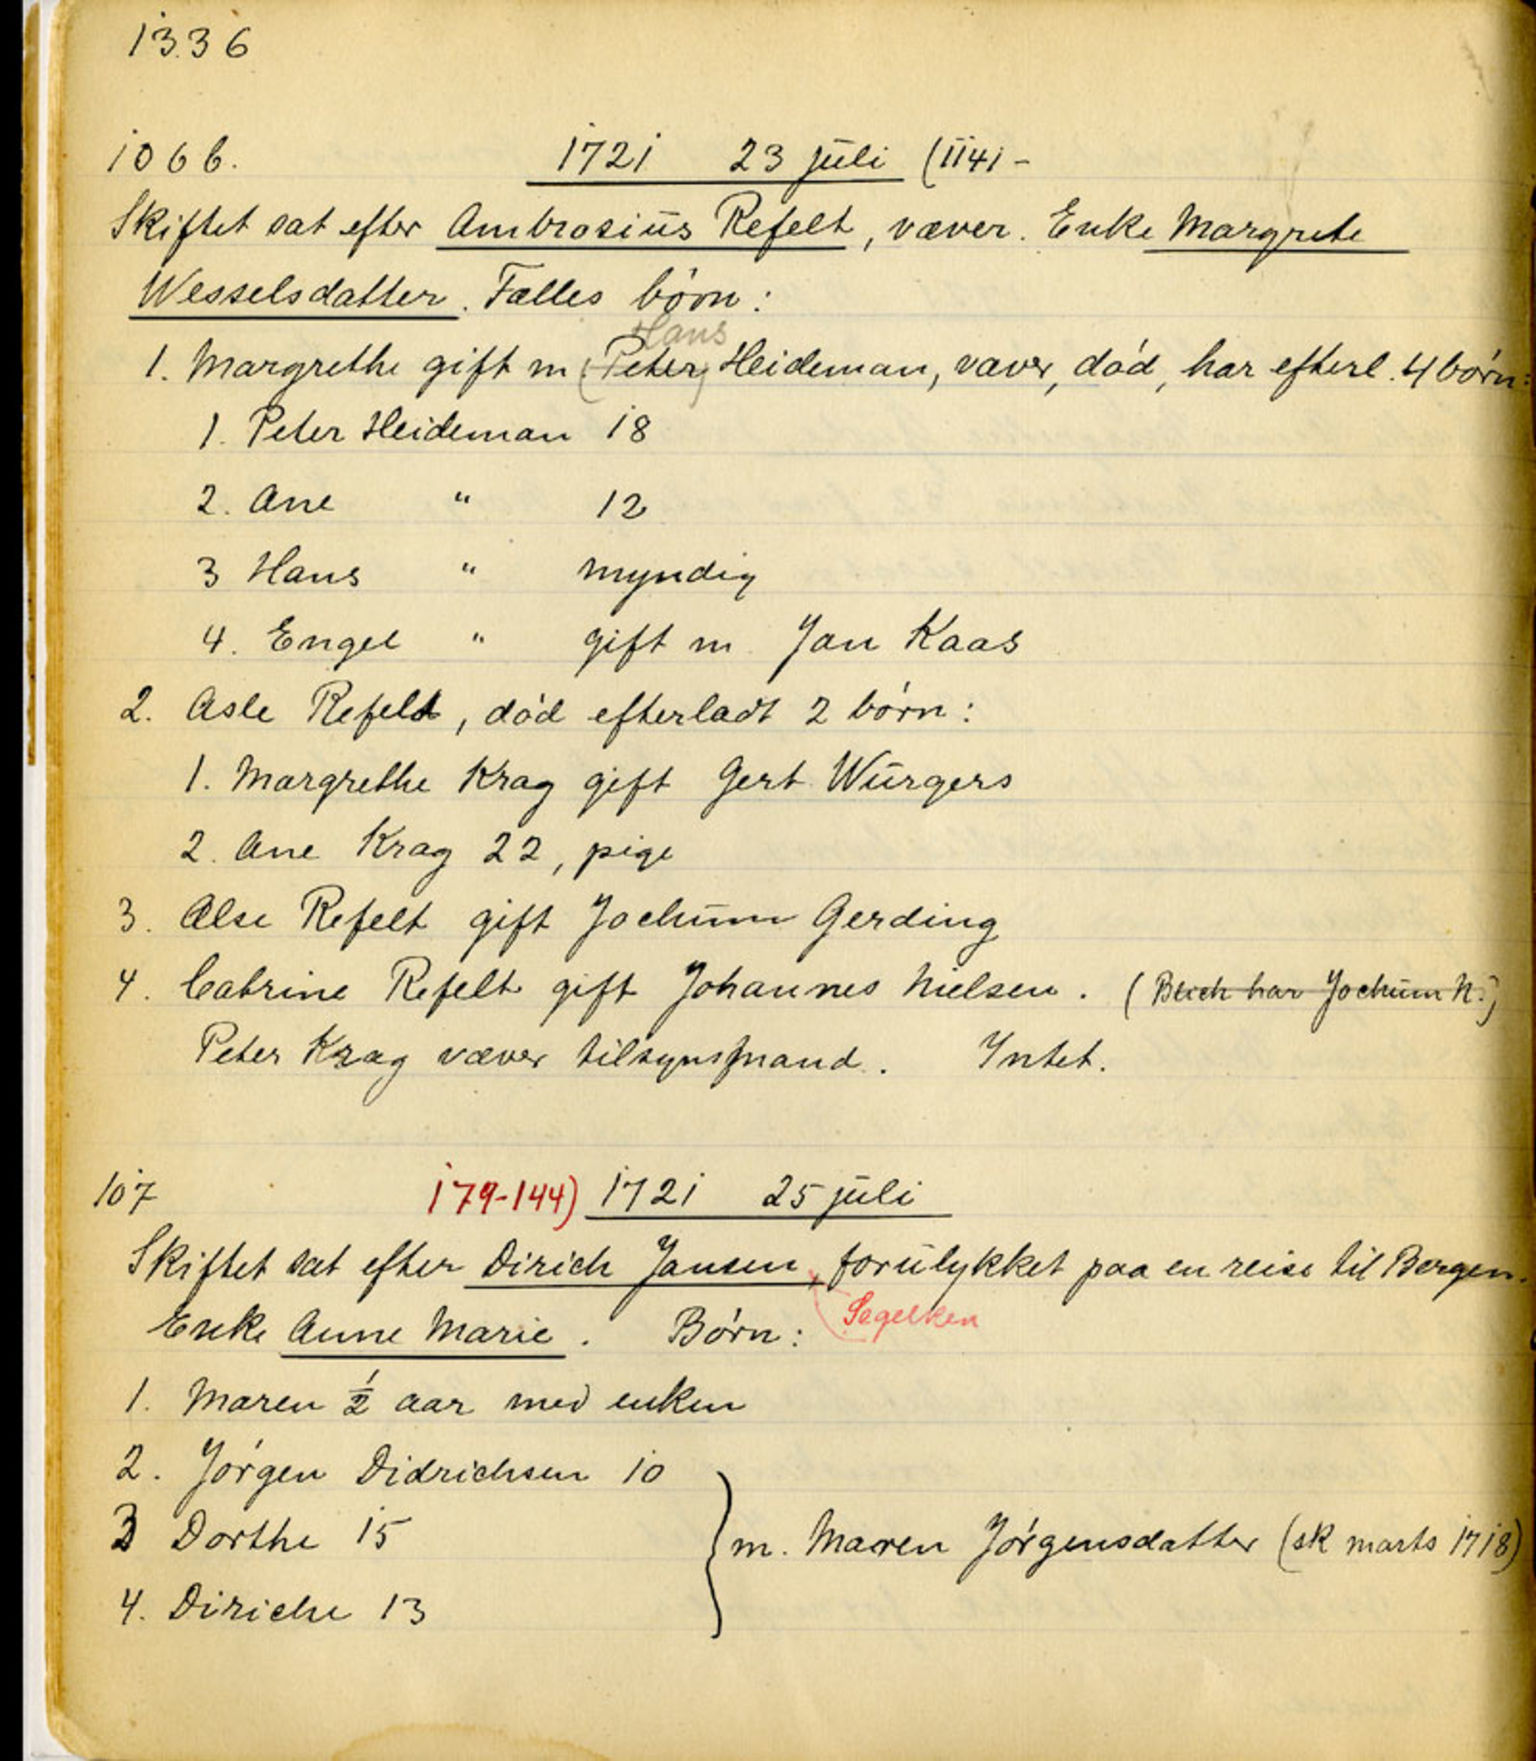 1336
106 b. 1721 23 juli (1141 -
Skiftet sat efter Ambrosius Refelt, væver. Enke Margrete
Wesselsdatter. Fælles børn:
Hans
1. Margrethe gift m (Peter) Heideman, væver, død, har efterl. 4 børn:
1. Peter Heideman 18
2. Ane " 12
3 Hans " myndig
4. Engel " gift m. Jan Kaas
2. Asle Refelt, død efterladt 2 børn:
1. Margrethe Krag gift Gert Würgers
2. Ane Krag 22, pige
3. Alse Refelt gift Jochum Gerding
4. Catrine Refelt gift Johannes Nielsen. (Blich har Jochum N.)
Peter Krag væver tilsynsmand. Intet.
107 179-144) 1721 25 juli
Skiftet sat efter Dirich Jansen, forulykket paa en reise til Bergen.
Segelken
Enke Anne Marie. Børn:
1. Maren ½ aar med enken
2. Jørgen Didrichsen 10
3 Dorthe 15 } m. Maren Jørgensdatter (sk marts 1718)
4. Diriche 13